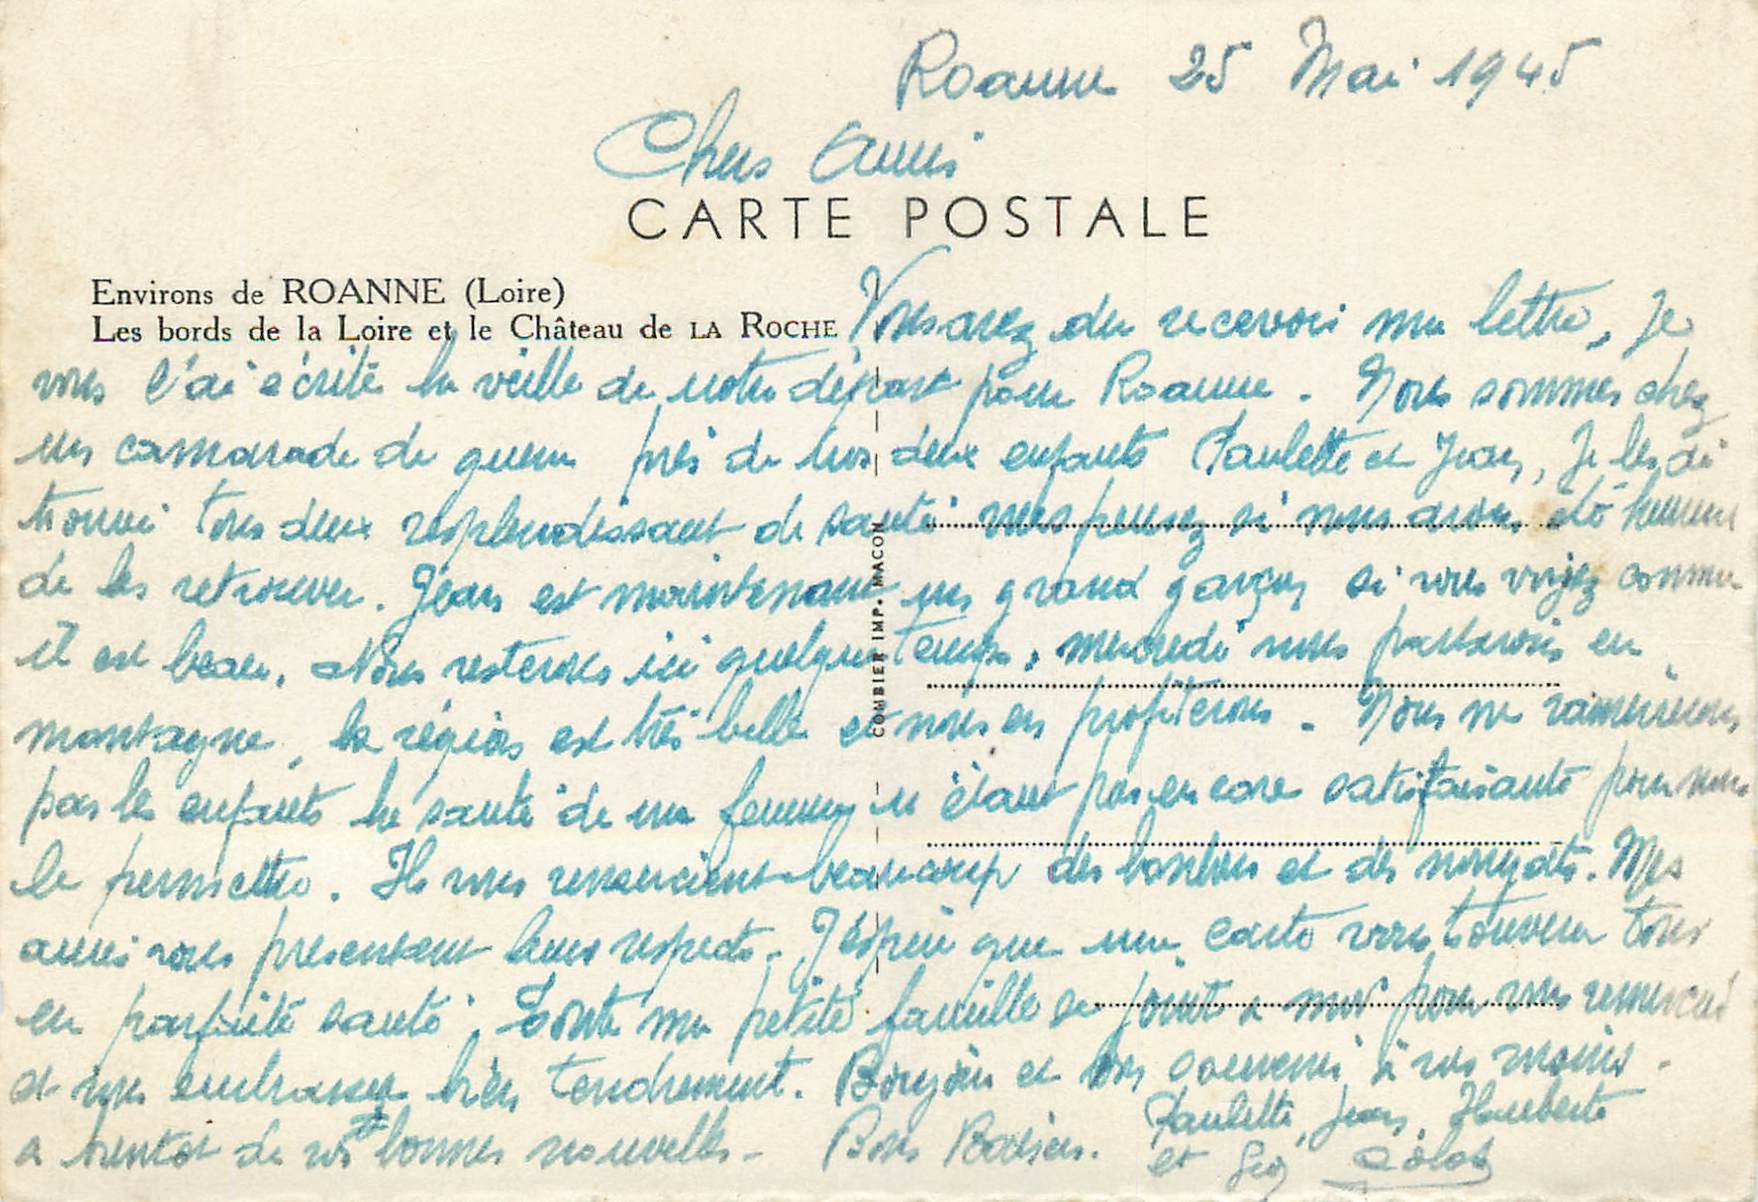 Roanne 25 Mai 1945
Chers Amis
CARTE POSTALE
Environs de ROANNE (Loire)
Les bords de la Loire et le Château de LA ROCHE
Vous avez du recevoir ma lettre, Je
vous l'ai écrite la veille de notre départ pour Roanne. Nous sommes chez
un camarade de guerre près de nos deux enfants Paulette et Jean, Je les ai
trouvé tous deux resplendissant de santé vous pensez si nous avons été heureux
de les retrouver. Jean est maintenant un grand garçon si vous voyez comme
il est beau. Nous resterons ici quelque temps, mercredi nous partirons en
montagne, la région est très belle et nous en profiterons. Nous ne ramènerons
pas les enfants la santé de ma femme n'étant pas encore satisfaisante pour nous
le permettre. Ils vous remercient beaucoup des bonbons et des nougats. Mes
amis vous présentent leurs respects. J'espère que ma carte vous trouvera tous
en parfaite santé. Toute ma petite famille se joint a moi pour vous remercier
et vous embrasser bien tendrement. Bonjour et bon souvenir à vos voisins.
a bientôt de vos bonnes nouvelles. Bons Baisers.
Paulette, Jean, Huberte
et Geo
COMBIER IMP. MACON